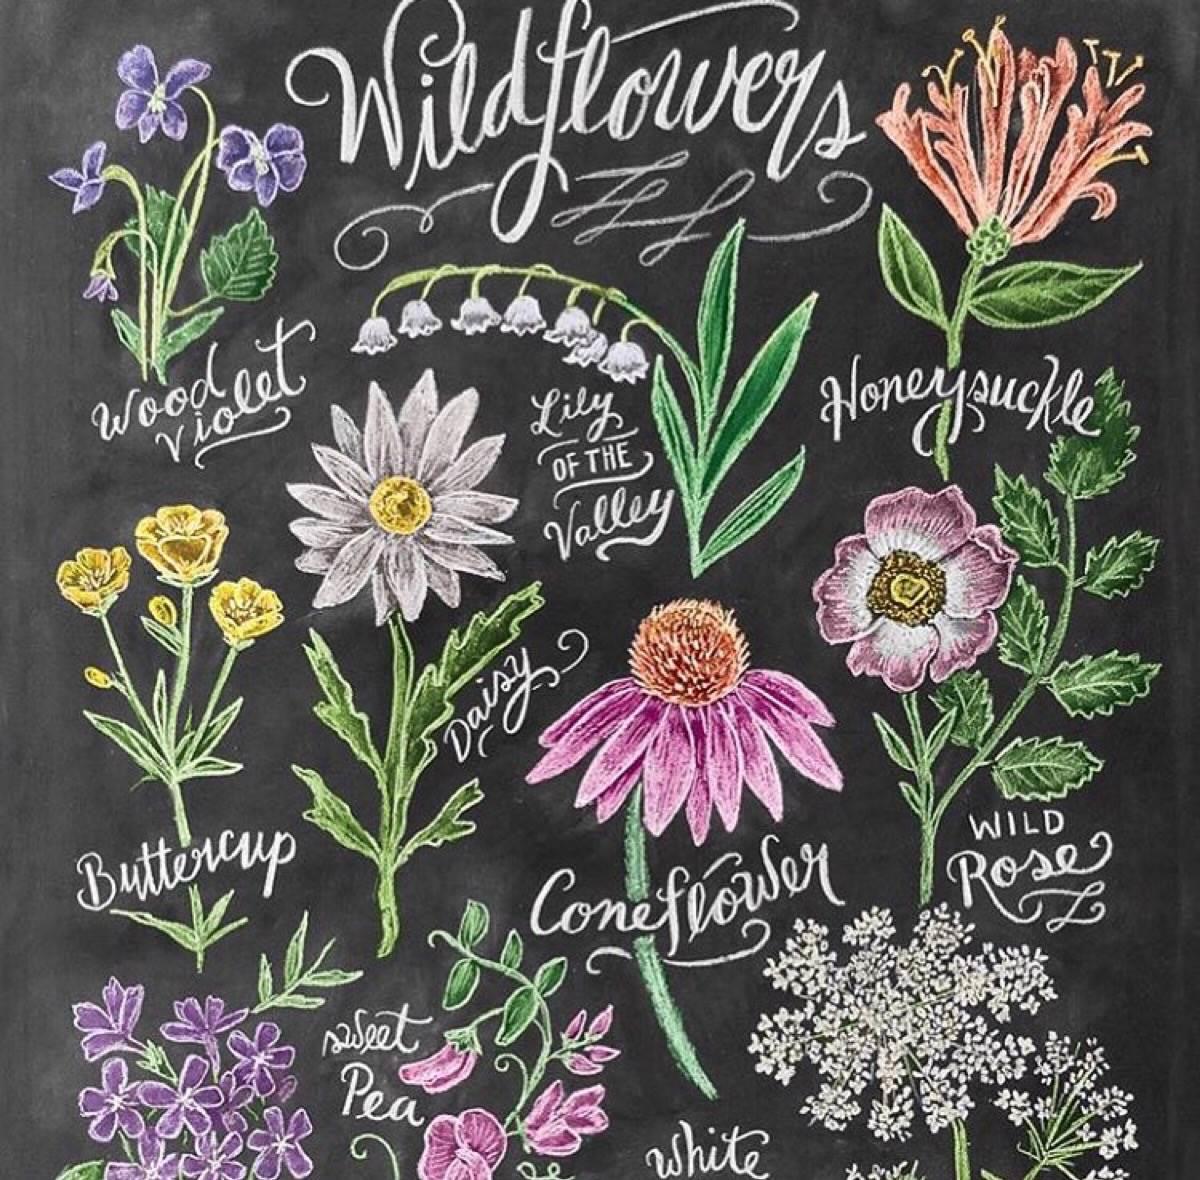 Wildflowers
Wood
Violet
Honeysuckle
Lily
OF THE
Valley
Daisy
Buttercup
Coneflower
WILD
Rose
sweet
Pea
White